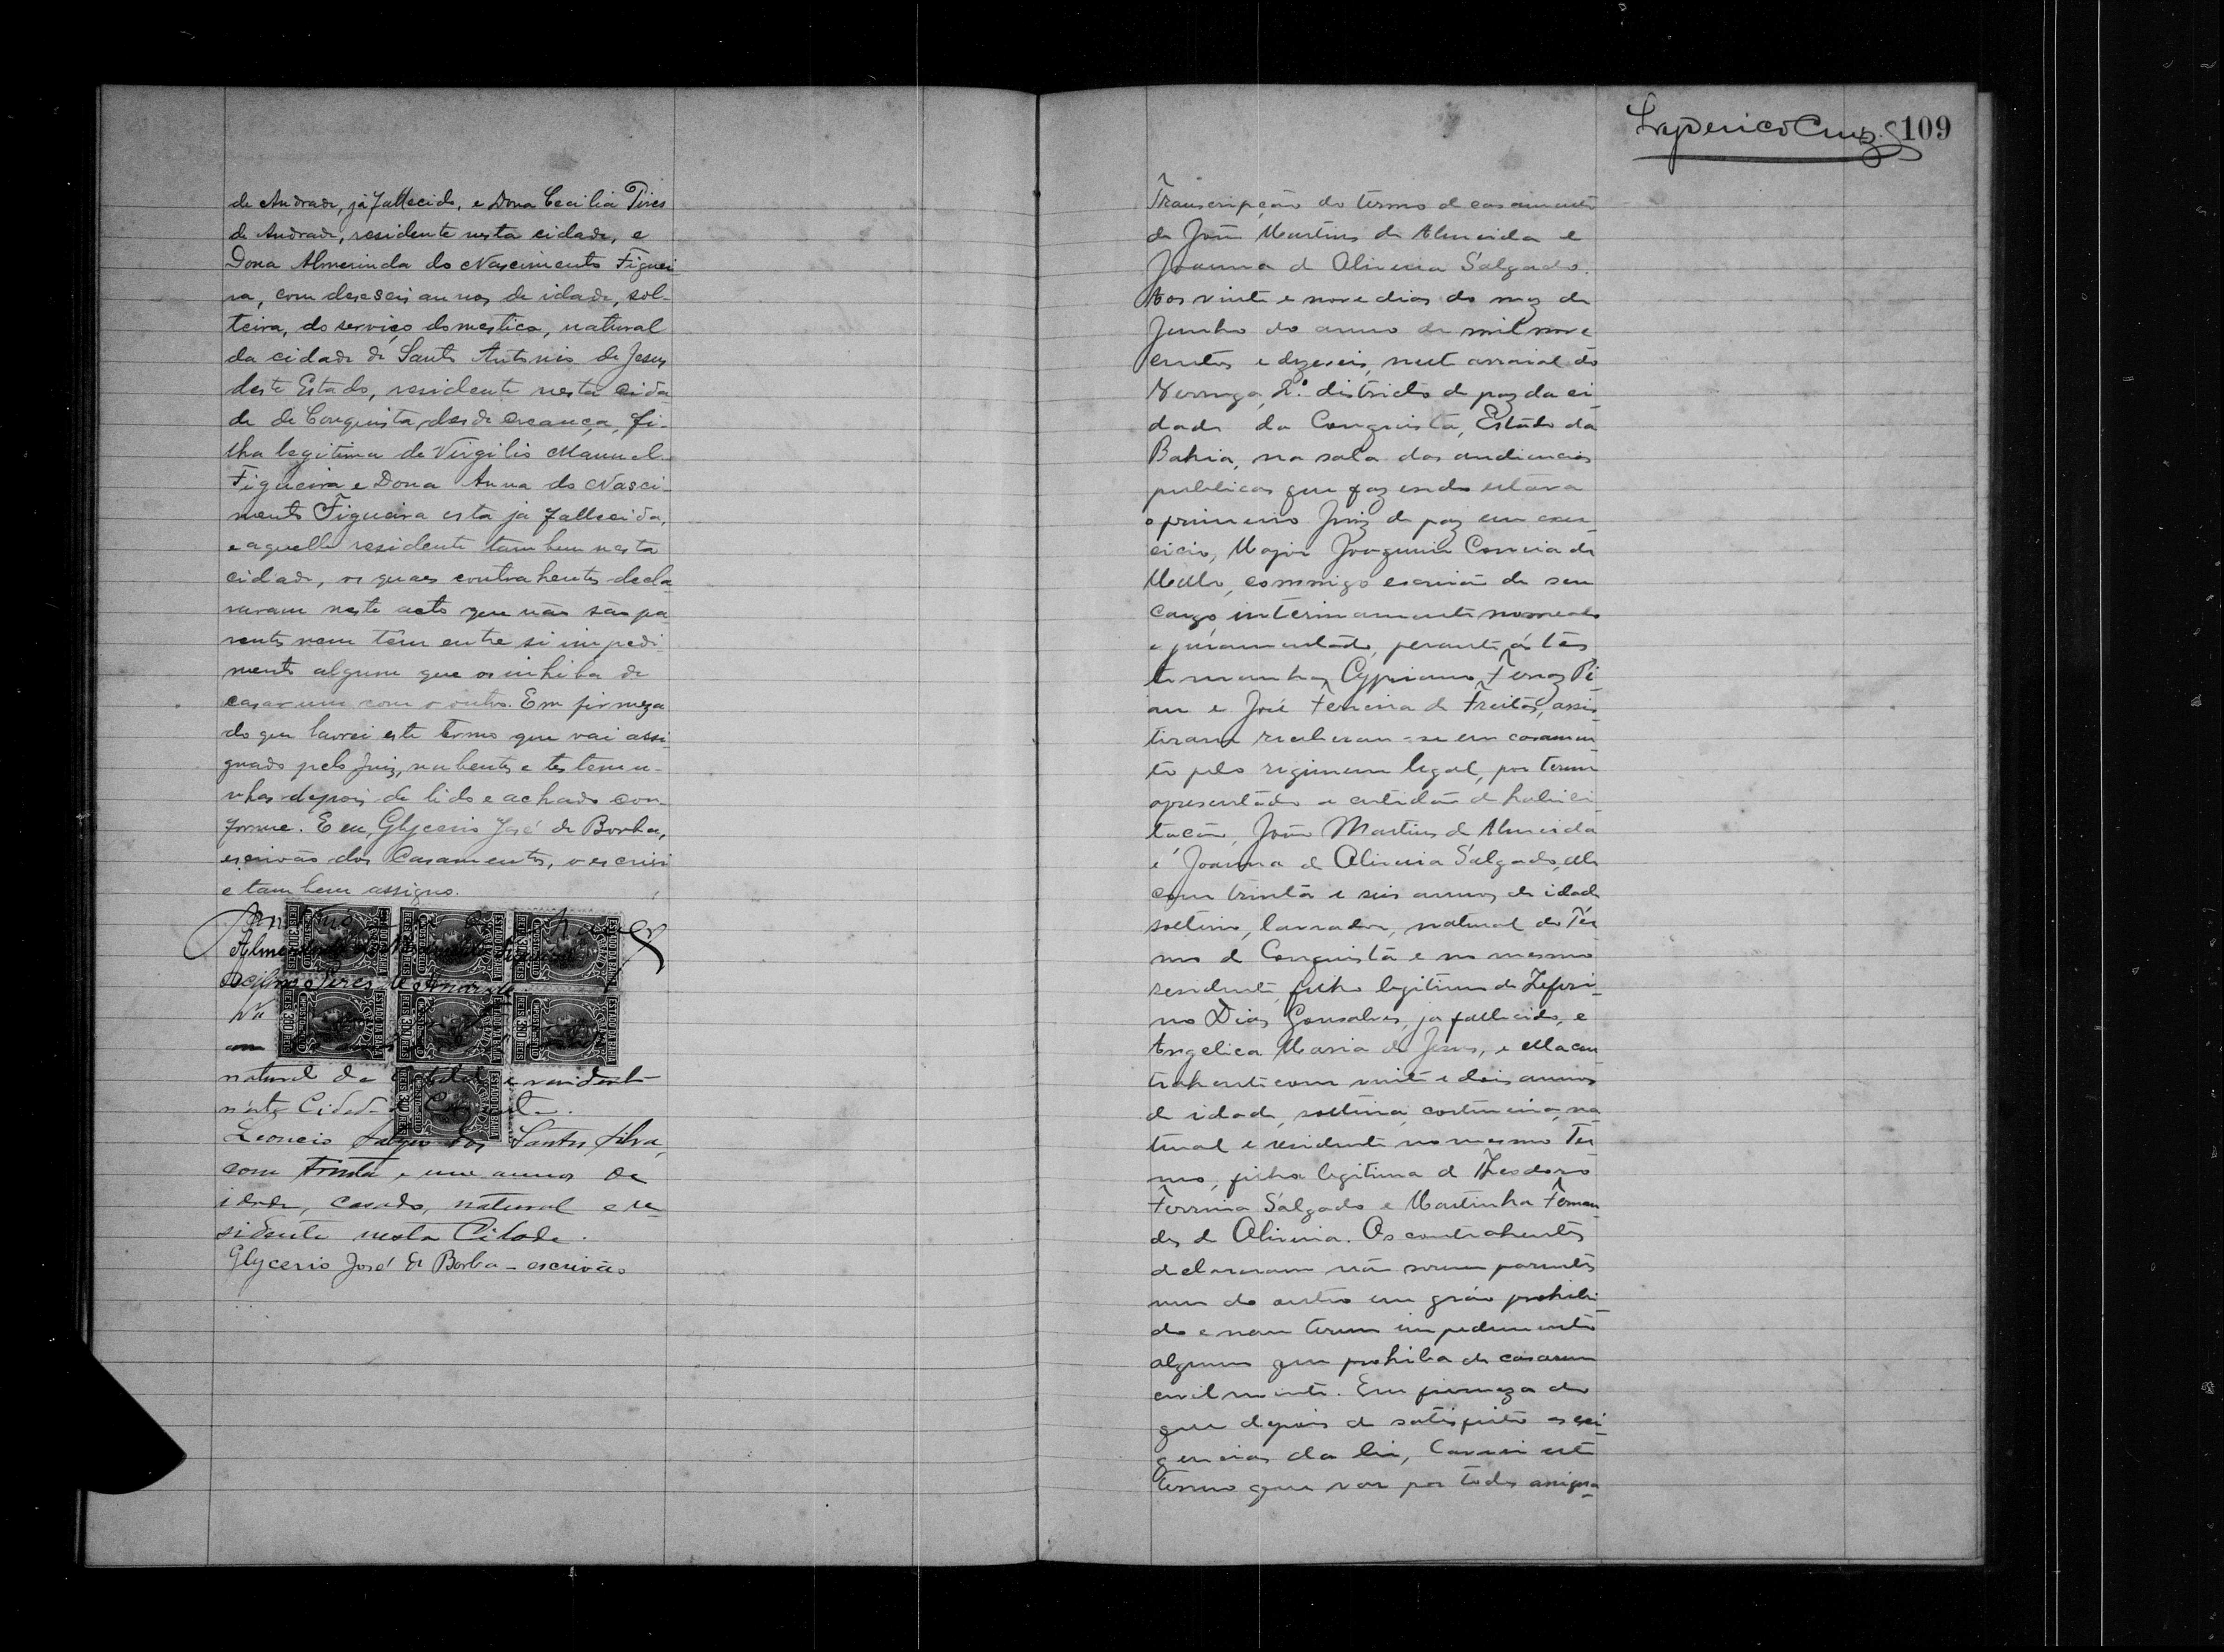 de Andrade, já fallecido, e Dona Cecilia Pires
de Andrade, residente nesta cidade, e
Dona Almerinda do Nascimento Figuei
ra, com deseseis annos de idade, sol-
teira, do serviço domestico, natural
da cidade de Santo Antonio de Jesus
deste Estado, residente nesta cida
de de Conquista, desde creança, fi-
lha legitima de Virgilio Manuel
Figueira e Dona Anna do Nasci-
mento Figueira esta já fallecida,
e aquelle residente tambem nesta
cidade, os quaes contrahentes decla
raram neste acto que não são pa-
rentes nem têm entre si impedi-
mento algum que os inhiba de
casar um com o outro. Em firmeza
do que lavrei este termo que vai assi-
gnado pelo Juiz, nubentes e testemu-
nhas depois de lido e achado con-
forme. E eu, Glycerio José de Borba,
escrivão dos Casamentos, o escrevi
e tambem assigno.
Almerinda do Nascimento Figueira
Pires de Andrade
natural da e residente
nesta Cidade
Leoncio dos Santos Silva,
com trinta e um annos de
idade, casado, natural e re-
sidente nesta Cidade.
Glycerio José de Borba - escrivão
109
Transcripção do termo de casamento
de João Martins de Almeida e
Joanna de Oliveira Salgado.
Aos vinte e nove dias do mez de
Junho do anno de mil nove
centos e dezeseis, neste arraial do
Verruga, 2º. districto de paz da ci
dade da Conquista, Estado da
Bahia, na sala das audiencias
publicas que fazendo estava
o primeiro Juiz de paz em exer
cicio, Major Joaquim Correia de
Mello, commigo escrivão de seu
cargo interinamente nomeado
e juramentado, perante ás tes
temunhas Cypriano Ferraz Pi
au e José Ferreira de Freitas, assis
tiram receberam-se em casamen
to pelo regimem legal, por terem
apresentado a certidão de habili
tação, João Martins de Almeida
e Joanna de Oliveira Salgado, elle
com trinta e seis annos de idade
solteiro, lavrador, natural do Ter
mo de Conquista e no mesmo
residente, filho legitimo de Zeferi-
no Dias Gonsalves, já fallecido, e
Angelica Maria de Jesus, e ella con
trahente com vinte e dois annos
de idade, solteira, costureira, na
tural e residente no mesmo Ter
mo, filha legitima de Theodoro
Ferreira Salgado e Martinha Fernan
des de Oliveira. Os contrahentes
declararam não serem parentes
um do outro em gráo prohibi
do e nem terem impedimento
algum que prohiba de casarem
civilmente. Em firmeza do
que depois de satisfeito as exi
gencias da lei, lavrei este
termo que vae por todos assigna